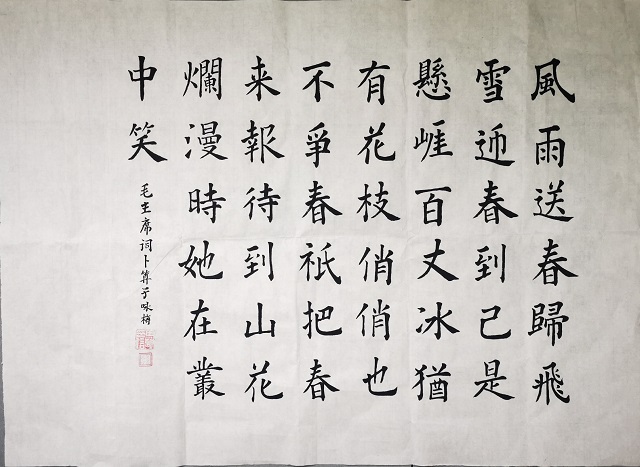 風雨送春歸飛
雪迎春到已是
懸崖百丈冰猶
有花枝俏俏也
不爭春祇把春
来報待到山花
爛漫時她在叢
中笑
毛主席词卜算子咏梅